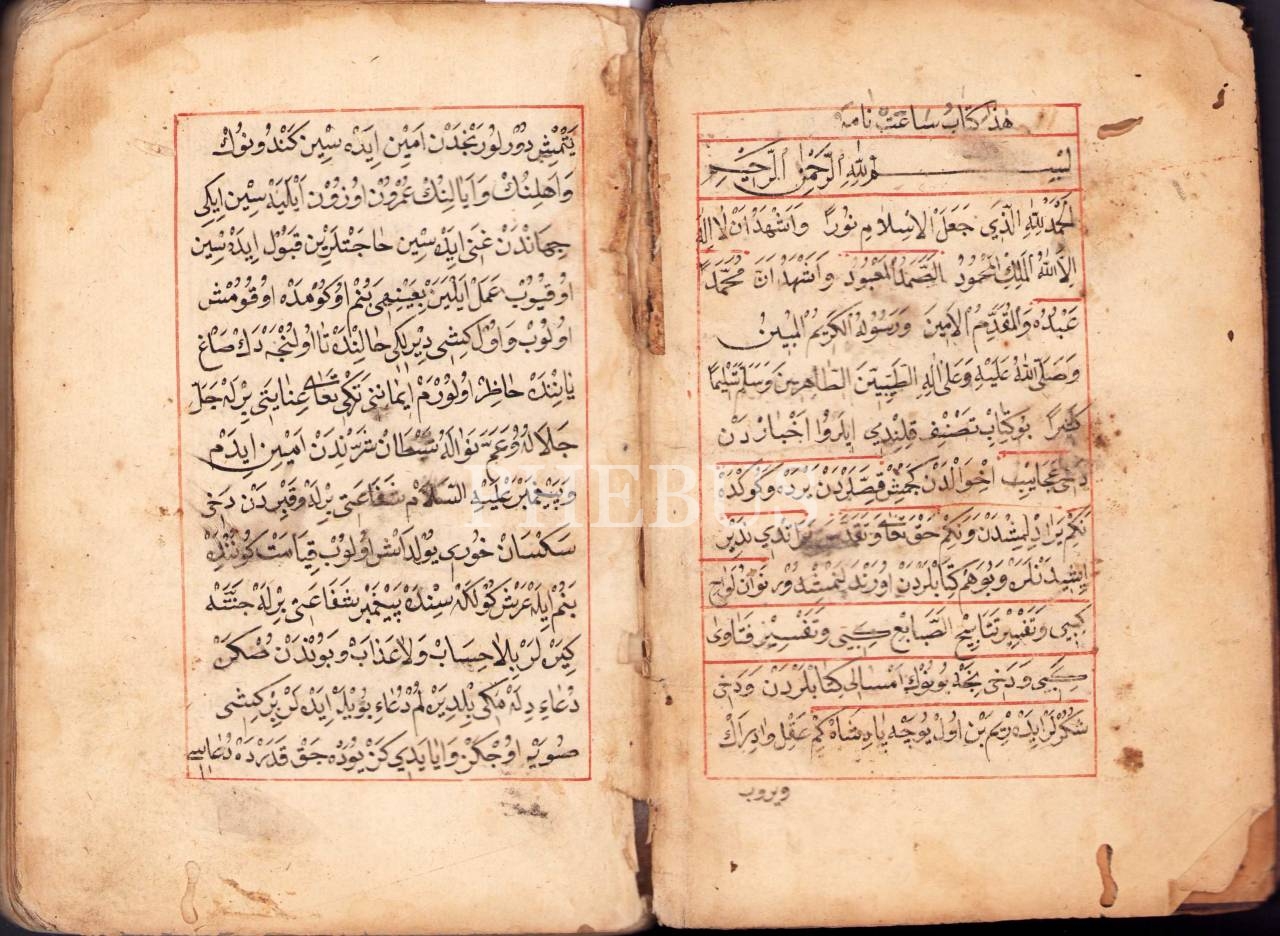 هذا كتاب ساعت نامه
بسم الله الرحمن الرحيم
الحمد لله الذي جعل الاسلام نورا واشهد ان لا اله
الا الله الملك المحمود الصمد المعبود واشهد ان محمدا
عبده والمقدم الامين ورسوله الكريم المبين
وصلى الله عليه وعلى اله الطيبين الطاهرين وسلم تسليما
كثيرا بو كتاب تصنيف قلندي ايلروا اخبار دن
دخى عجايب احوالدن كچمش قصلردن يرده وكوكده
نكم يرادلمشدن ونكم حق تعا وتقدس
ايشيدنلره وبو رهم كتابلردن اوزندلنمشدور
كبى وتفسير الصنايع كبى وتفسير فتاوى
كبى ودخى نجه بونوك امسالى كتابلردن ودخى
شكرلر ايده ريم بن اول يوجه پادشاه كم عقل وادراك
ويروب
يتمش دورلو رنجدن امين ايده سين كندونوك
واهلنك وايالنك عمرون اوزون ايليه سين ايكى
جهاندن غنى ايده سين حاجتلرين قبول ايده سين
اوقيوب عمل ايلين بعينهى بنم اوكومده اوقومش
اولوب واول كشى ديريكى حالنده تا اولنجه دك صاغ
ياننده حاظر اولورم ايماننى تكى تعا عنايتى برله جل
جلاله وعم نواله شيطان شرندن امين ايدم
وپيغمبر عليه السلام شفاعتى برله وقبردن دخى
سكسان خورى يولداش اولوب قيامت كوننده
بنم ايله عرش كولكه سنده پيغمبر شفاعتى برله جنته
كيرلر بلا حساب ولا عذاب وبوندن صكره
دعاء دله مكى بلديره لم دعاء بويله ايده لر بر كشى
صويه اوجكن وايا يدى كز يوره حق قدرده دعاسى
PHEBUS